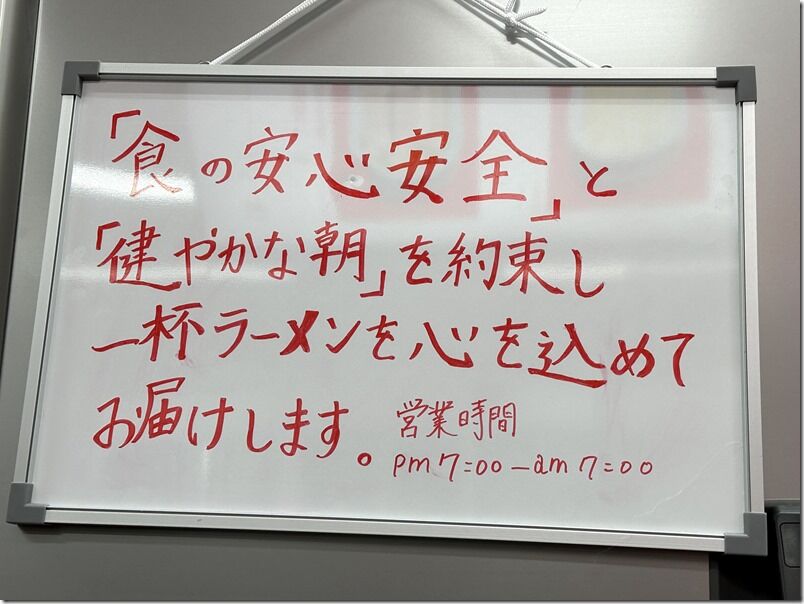 「食の安心安全」と
「健やかな朝」を約束し
一杯ラーメンを心を込めて
お届けします。
営業時間
pm 7:00 – am 7:00